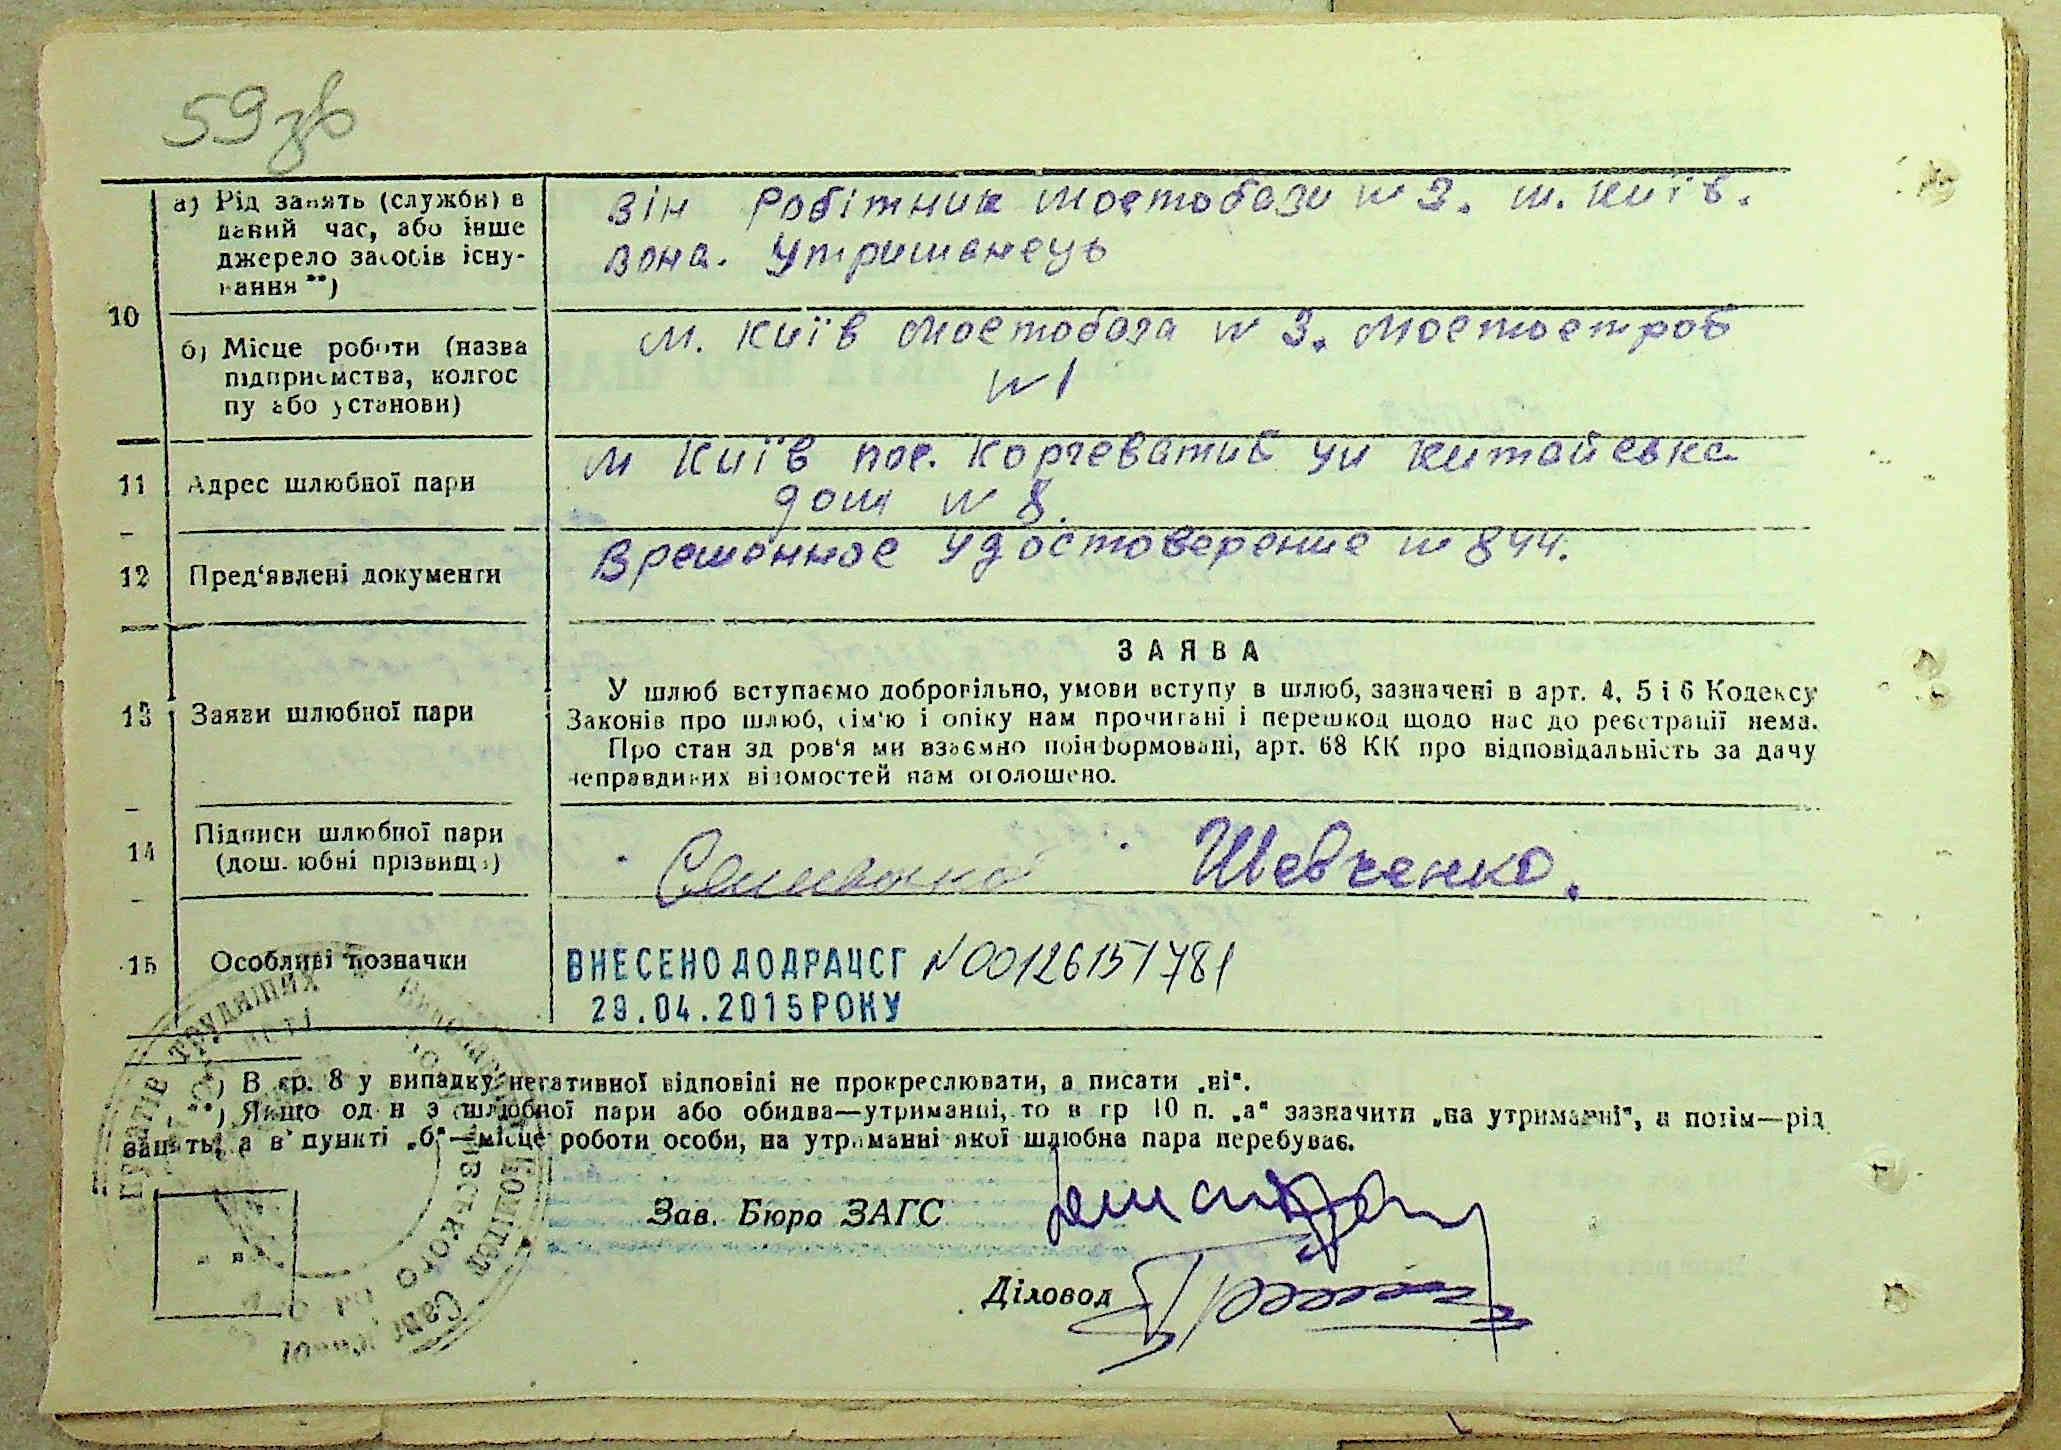 59 зв
а) Рід занять (служби) в
даний час, або інше
джерело засобів існу-
вання **)
він Робітник мостобази № 3. м. Київ.
вона. Утриманець
10
б) Місце роботи (назва
підприємства, колгос
пу або установи)
м. Київ мостобаза № 3. мостостроб
№ 1
11 Адрес шлюбної пари
м Київ пос. Корчеватий ул Китайевка
дом № 8.
12 Пред'явлені документи
Временное удостоверение № 844.
13 Заяви шлюбної пари
ЗАЯВА
У шлюб вступаємо добровільно, умови вступу в шлюб, зазначені в арт. 4, 5 і 6 Кодексу
Законів про шлюб, сім'ю і опіку нам прочитані і перешкод щодо нас до реєстрації нема.
Про стан здоров'я ми взаємно поінформовані, арт. 68 КК про відповідальність за дачу
неправдивих відомостей нам оголошено.
14 Підписи шлюбної пари
(дошлюбні прізвища)
Шевченко.
15 Особливі позначки
ВНЕСЕНО ДО ДРАЦСГ N 00126151781
29.04.2015 РОКУ
*) В гр. 8 у випадку негативної відповіді не прокреслювати, а писати „ні“.
**) Якщо один з шлюбної пари або обидва—утриманні, то в гр 10 п. „а“ зазначити „на утриманні“, а потім—рід
занять, а в пункті „б“—місце роботи особи, на утриманні якої шлюбна пара перебуває.
Зав. Бюро ЗАГС
Діловод